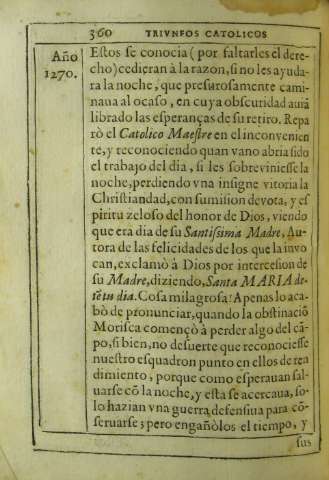 360 TRIVNFOS CATOLICOS
Año
1270.
Estos se conocia (por faltarles el dere-
cho) cedieran à la razon, si no les ayuda-
ra la noche, que presurosamente cami-
naua al ocaso, en cuya obscuridad aurà
librado las esperanças de su retiro. Repa
rò el Catolico Maestre en el inconuenien
te, y reconociendo quan vano abria sido
el trabajo del dia, si les sobreviniesse la
noche, perdiendo vna insigne vitoria la
Christiandad, con sumision devota, y es
piritu zeloso del honor de Dios, viendo
que era dia de su Santissima Madre, Au-
tora de las felicidades de los que la invo
can, exclamò à Dios por intercesion de
su Madre, diziendo, Santa MARIA de-
tẽ tu dia. Cosa milagrosa! Apenas lo aca-
bò de pronunciar, quando la obstinaciõ
Morisca començò à perder algo del cã-
po, si bien, no de suerte que reconociesse
nuestro esquadron punto en ellos de ren
dimiento, porque como esperauan sal-
uarse cõ la noche, y esta se acercaua, so-
lo hazian vna guerra defensiua para cõ-
seruarse; pero engañòlos el tiempo, y
sus